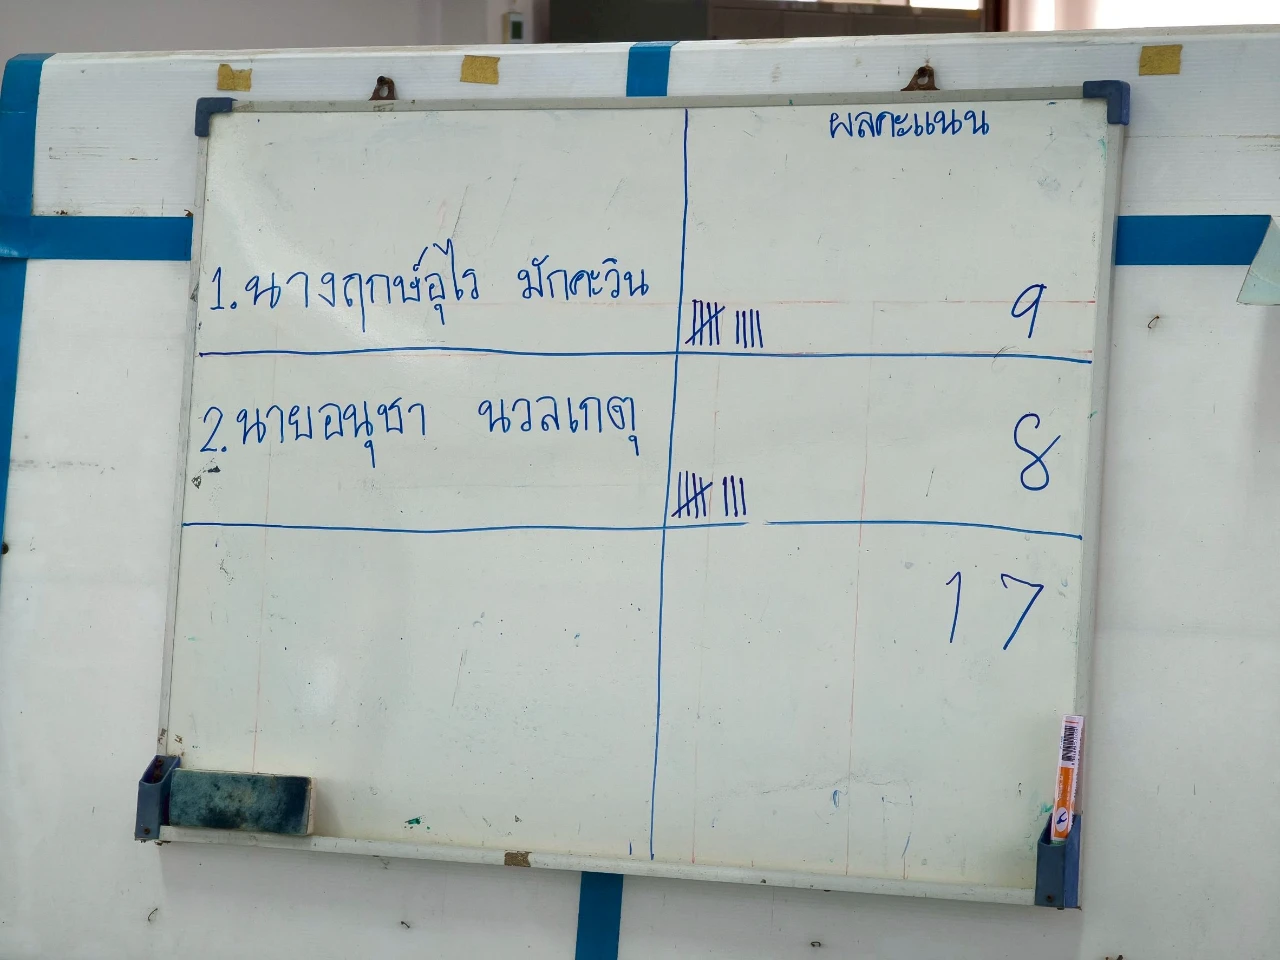 ผลคะแนน
1. นางฤกษ์อุไร มักคะวิน 9
2. นายอนุชา นวลเกตุ 8
17